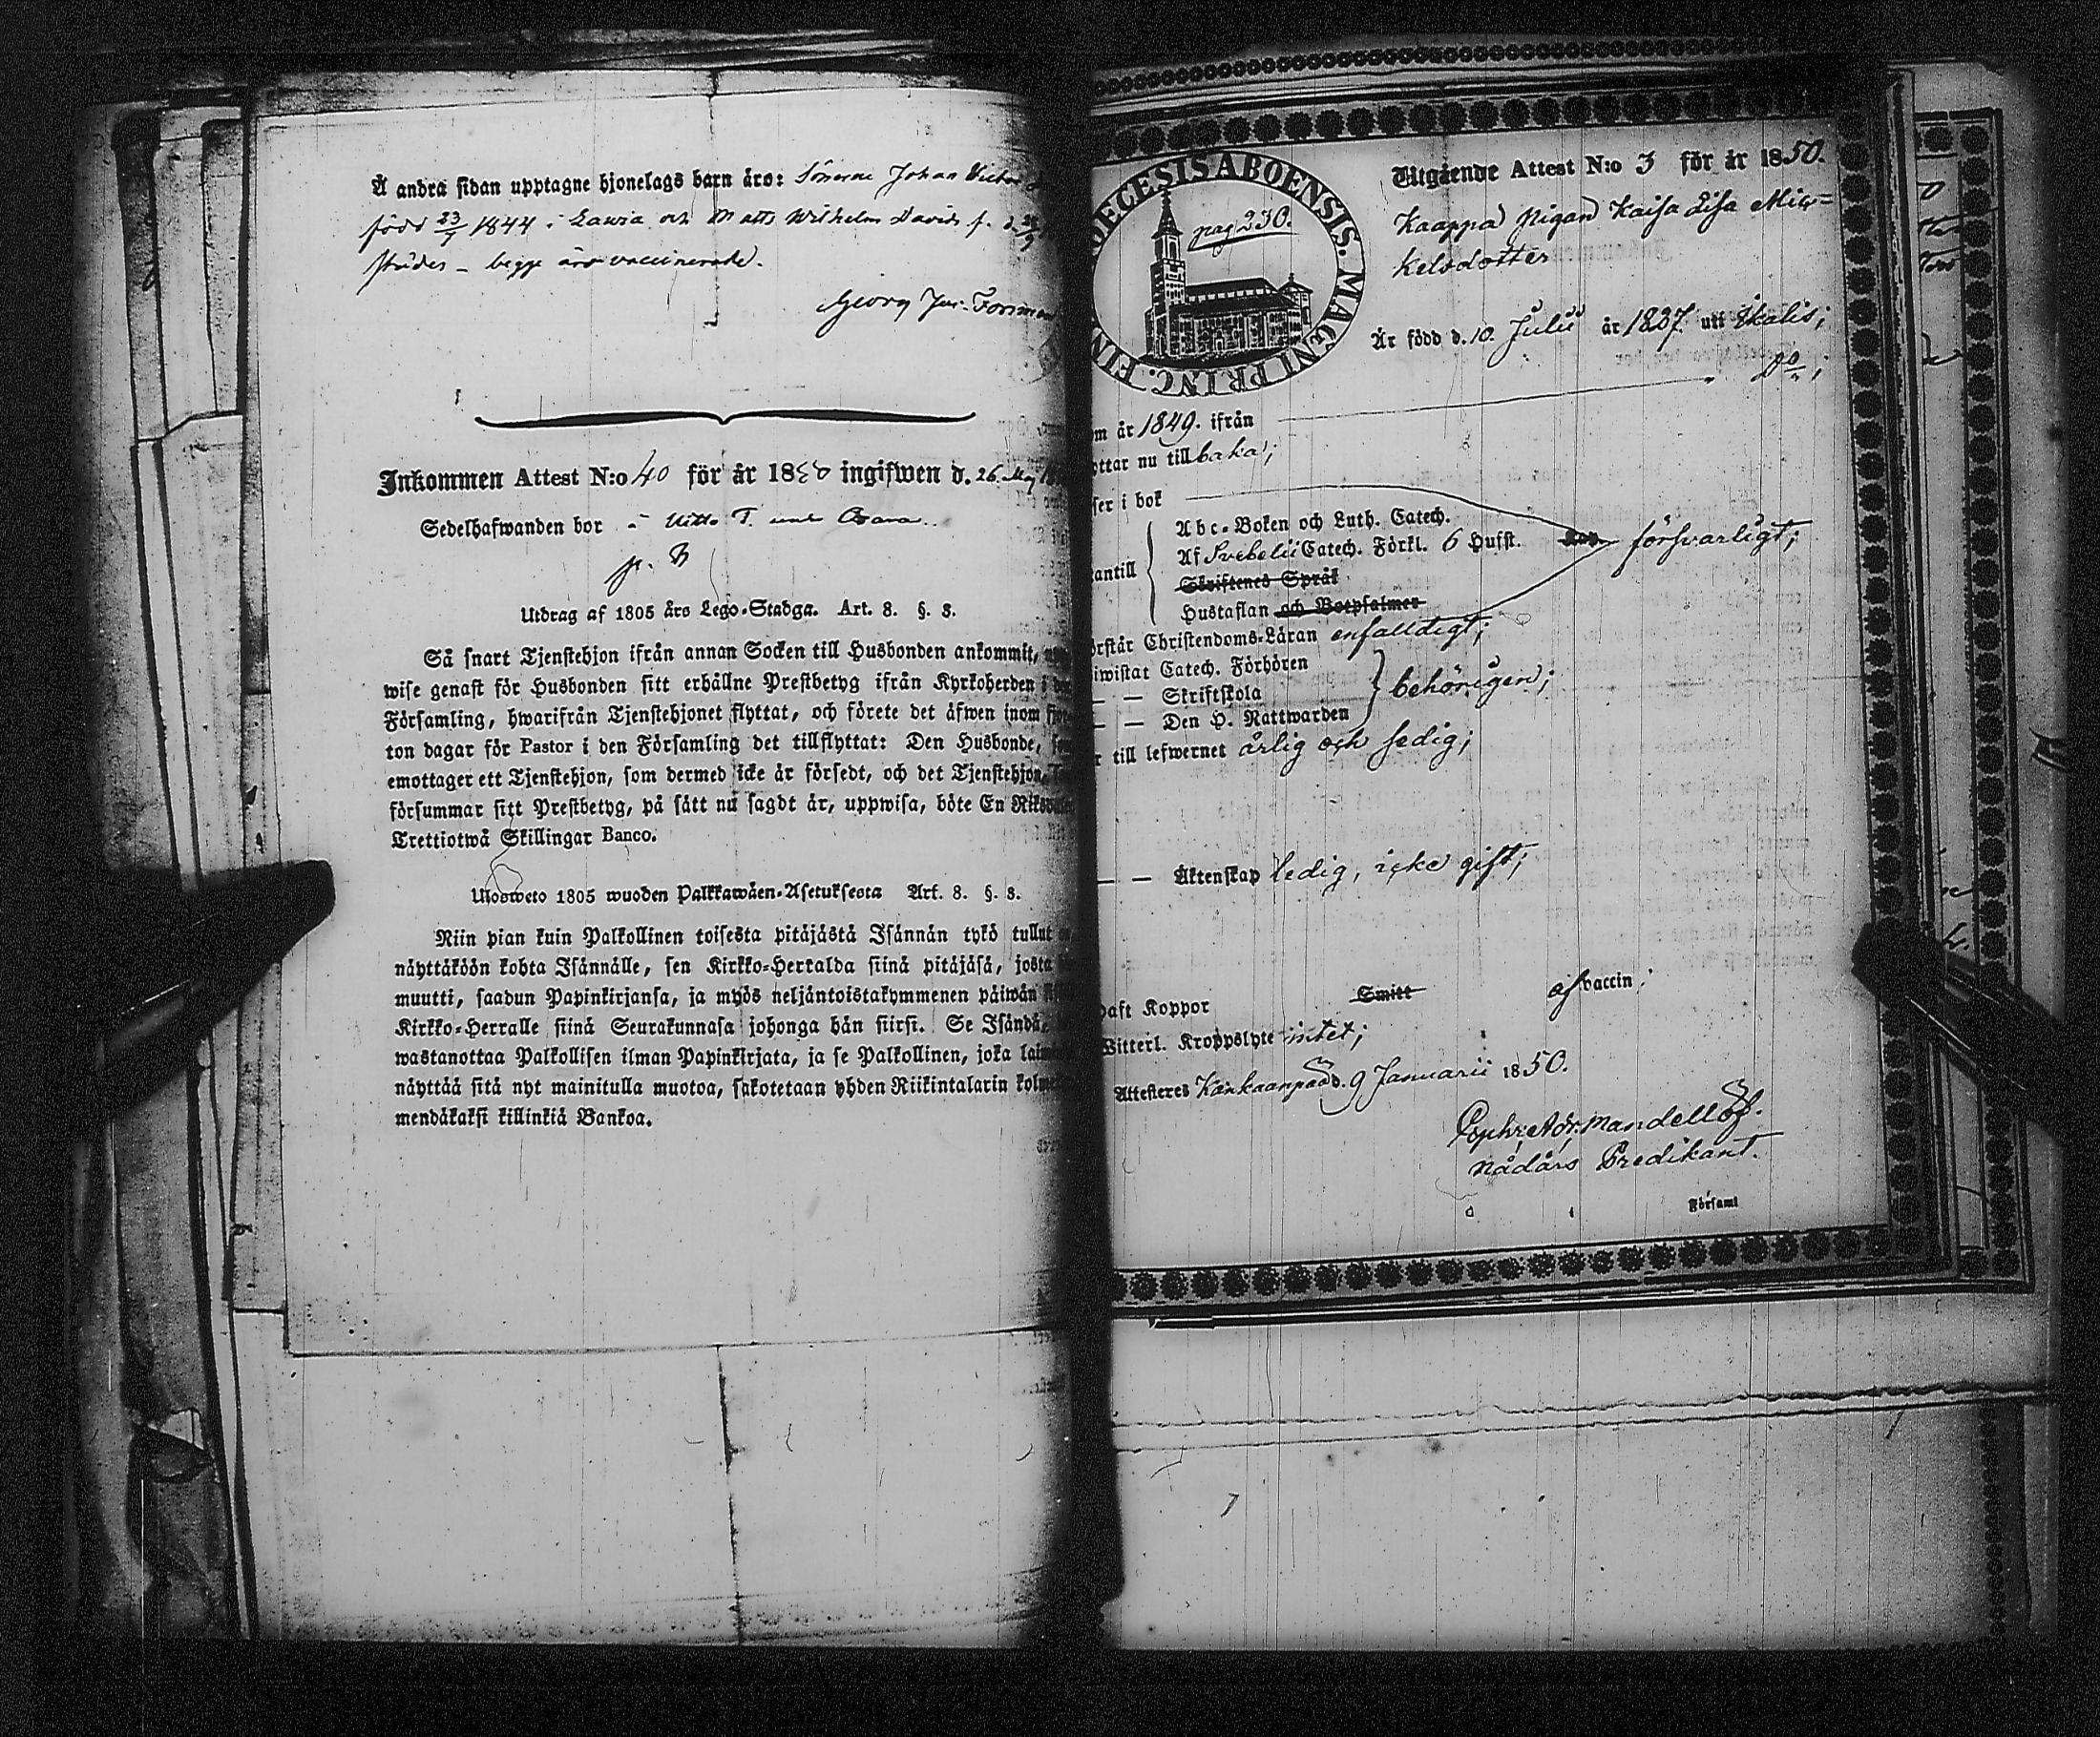 Å andra sidan upptagne hjonelags barn äro: Sönerne Johan Victor
född 23/7 1844 i Lawia och Matts Wilhelm David f. d.
städes – begge äro vaccinerade.
Georg Forsman
Inkommen Attest N:o 40 för år 1850 ingifwen d. 26. Maj
Sedelhafwanden bor å
p.
Utdrag af 1805 års Lego-Stadga. Art. 8. §. 3.
Så snart Tjenstehjon ifrån annan Socken till Husbonden ankommit,
wise genast för Husbonden sitt erhållne Prestbetyg ifrån Kyrkoherden i
Församling, hwarifrån Tjenstehjonet flyttat, och förete det äfwen inom
ton dagar för Pastor i den Församling det tillflyttat: Den Husbonde,
emottager ett Tjenstehjon, som dermed icke är försedt, och det Tjenstehjon,
försummar sitt Prestbetyg, på sätt nu sagdt är, uppwisa, böte En
Trettiotwå Skillingar Banco.
Ulosweto 1805 wuoden Palkkawäen-Asetuksesta Art. 8. §. 3.
Niin pian kuin Palkollinen toisesta pitäjästä Isännän tykö tullut
näyttäköön kohta Isännälle, sen Kirkko-Herralda siinä pitäjäsä, josta
muutti, saadun Papinkirjansa, ja myös neljäntoistakymmenen päiwän
Kirkko-Herralle siinä Seurakunnasa johonga hän siirsi. Se Isändä,
wastanottaa Palkollisen ilman Papinkirjata, ja se Palkollinen, joka
näyttää sitä nyt mainitulla muotoa, sakotetaan yhden Riikintalarin
mendäkaksi killinkiä Bankoa.
DIECESIS ABOENSIS. MAGNI PRINC. FIN
pag 230.
Utgående Attest N:o 3 för år 1850.
Kaappa Pigan Kaisa Lisa Mic=
kelsdotter
Är född d. 10. Julii år 1837. uti Ikalis;
om år 1849. ifrån D:o;
yttar nu till baka;
ser i bok
antill
Abc-Boken och Luth. Catech.
Af Svebelii Catech. Förkl. 6 Hufst. försvarligt;
Skriftenes Språk
Hustaflan och Botpsalmer
örstår Christendoms-Läran enfalldigt;
iwistat Catech. Förhören
— — Skriftskola behörigen;
— — Den H. Nattwarden
r till lefwernet ärlig och sedig;
— — Äktenskap ledig, icke gift;
haft Koppor Smitt af vaccin;
Witterl. Kroppslyte intet;
Attesteres Kankaanpää d. 9 Januarii 1850.
Adr. Mandellöf.
nådårs Predikant.
Församl